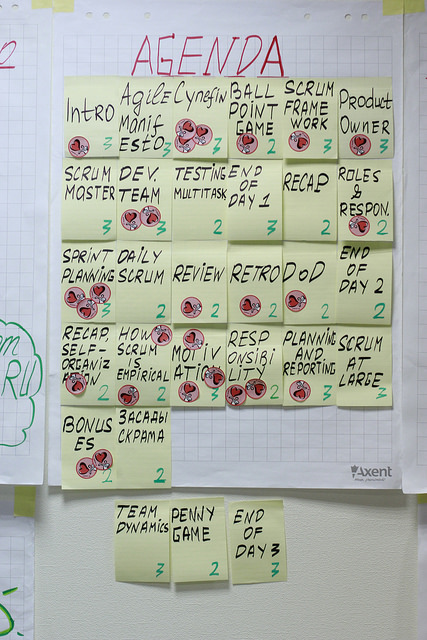 AGENDA
Intro
3
Agile
Manif
esto
3
Cynefin
3
BALL
POINT
GAME
2
SCRUM
FRAME
WORK
3
Product
Owner
3
SCRUM
MASTER
3
DEV.
TEAM
3
TESTING
MULTITASK
2
END
OF
DAY 1
3
RECAP
2
ROLES
&
RESPON.
2
SPRINT
PLANNING
3
DAILY
SCRUM
2
REVIEW
2
RETRO
2
DoD
2
END
OF
DAY 2
2
RECAP
SELF-
ORGANIZ
ATION
2
HOW
SCRUM
IS
EMPIRICAL
2
MOTIV
ATION
3
RESP
ONSIBI
LITY
2
PLANNING
AND
REPORTING
3
SCRUM
AT
LARGE
3
BONUS
ES
2
ЗАСАДЫ
СКРАМА
2
Axent
TEAM
DYNAMICS
3
PENNY
GAME
2
END
OF
DAY 3
3
RU
5.